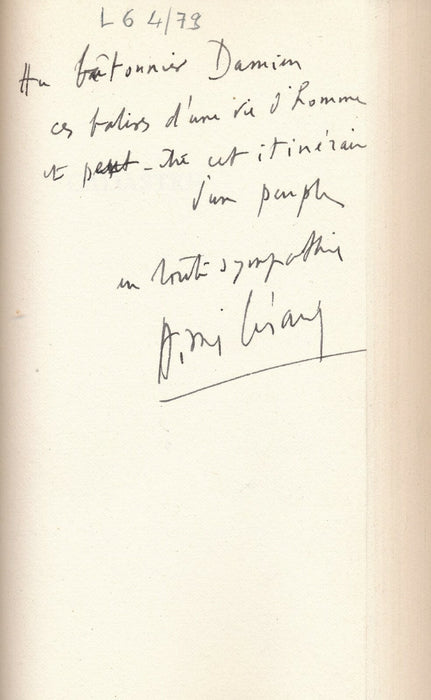 L 6 4/79
Au bâtonnier Damien
ces balises d'une vie d'homme
et peut-être cet itinéraire
d'un peuple
en toute sympathie
Aimé Césaire